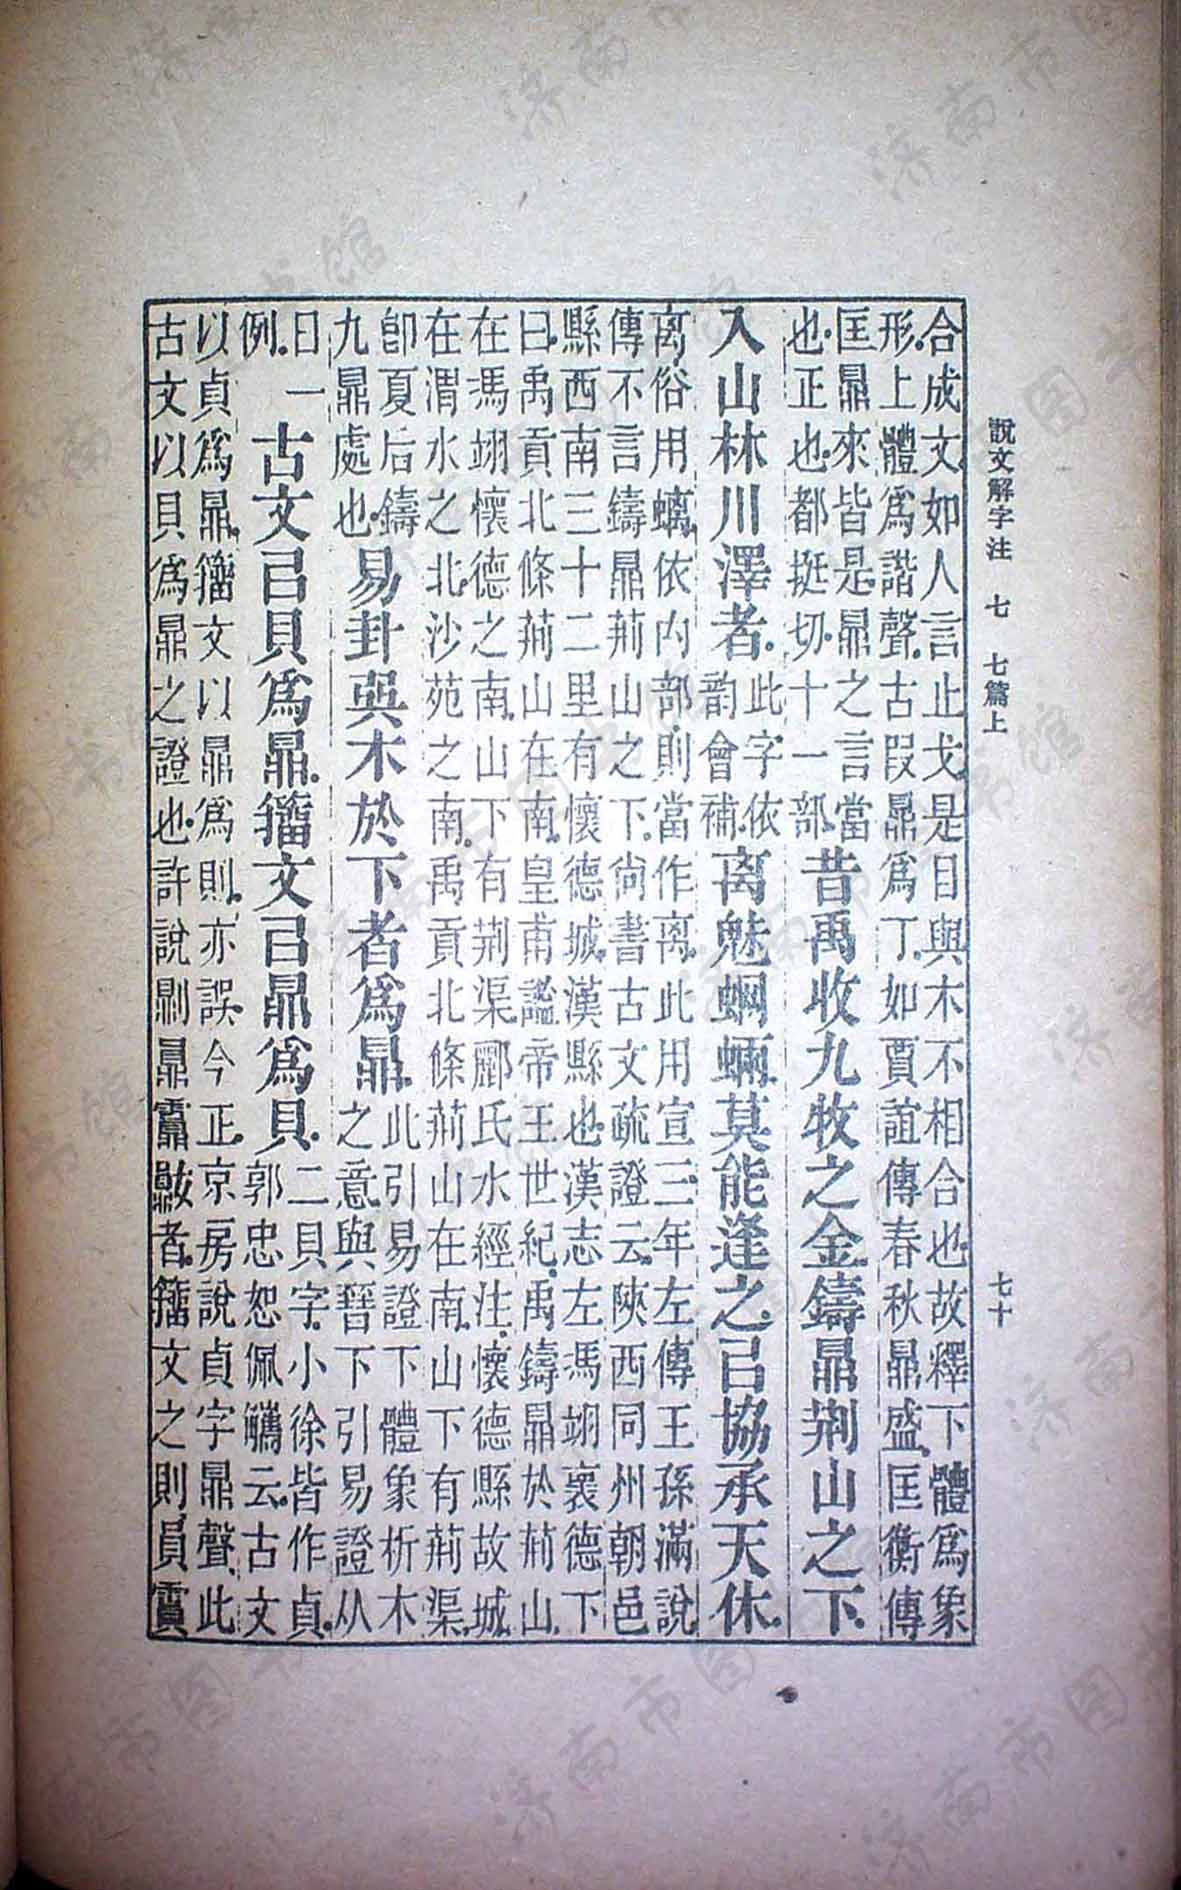 說文解字注 七 七篇上 七十
合成文如人言止戈是目與木不相合也故釋下體爲象
形上體爲諧聲古叚鼎爲丁如賈誼傳春秋鼎盛匡衡傳
匡鼎來皆是鼎之言當
也正也都挺切十一部
昔禹收九牧之金鑄鼎荆山之下
入山林川澤者
此字依
韵會補
离魅蝄蜽莫能逢之㠯協承天休
离俗用螭依内部則當作离此用宣三年左傳王孫滿說
傳不言鑄鼎荆山之下尙書古文疏證云陝西同州朝邑
縣西南三十二里有懷德城漢縣也漢志左馮翊褱德下
曰禹貢北條荆山在南皇甫謐帝王世紀禹鑄鼎於荆山
在馮翊懷德之南山下有荆渠酈氏水經注懷德縣故城
在渭水之北沙苑之南禹貢北條荆山在南山下有荆渠
卽夏后鑄
九鼎處也
易卦巽木於下者爲鼎
此引易證下體象析木
之意與晉下引易證从
日一
例
古文㠯貝爲鼎籒文㠯鼎爲貝
二貝字小徐皆作貞
郭忠恕佩觿云古文
以貞爲鼎籒文以鼎爲則亦誤今正京房說貞字鼎聲此
古文以貝爲鼎之證也許說者籒文之則員霣